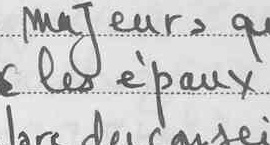 majeurs qu
les épaux
lors du consei